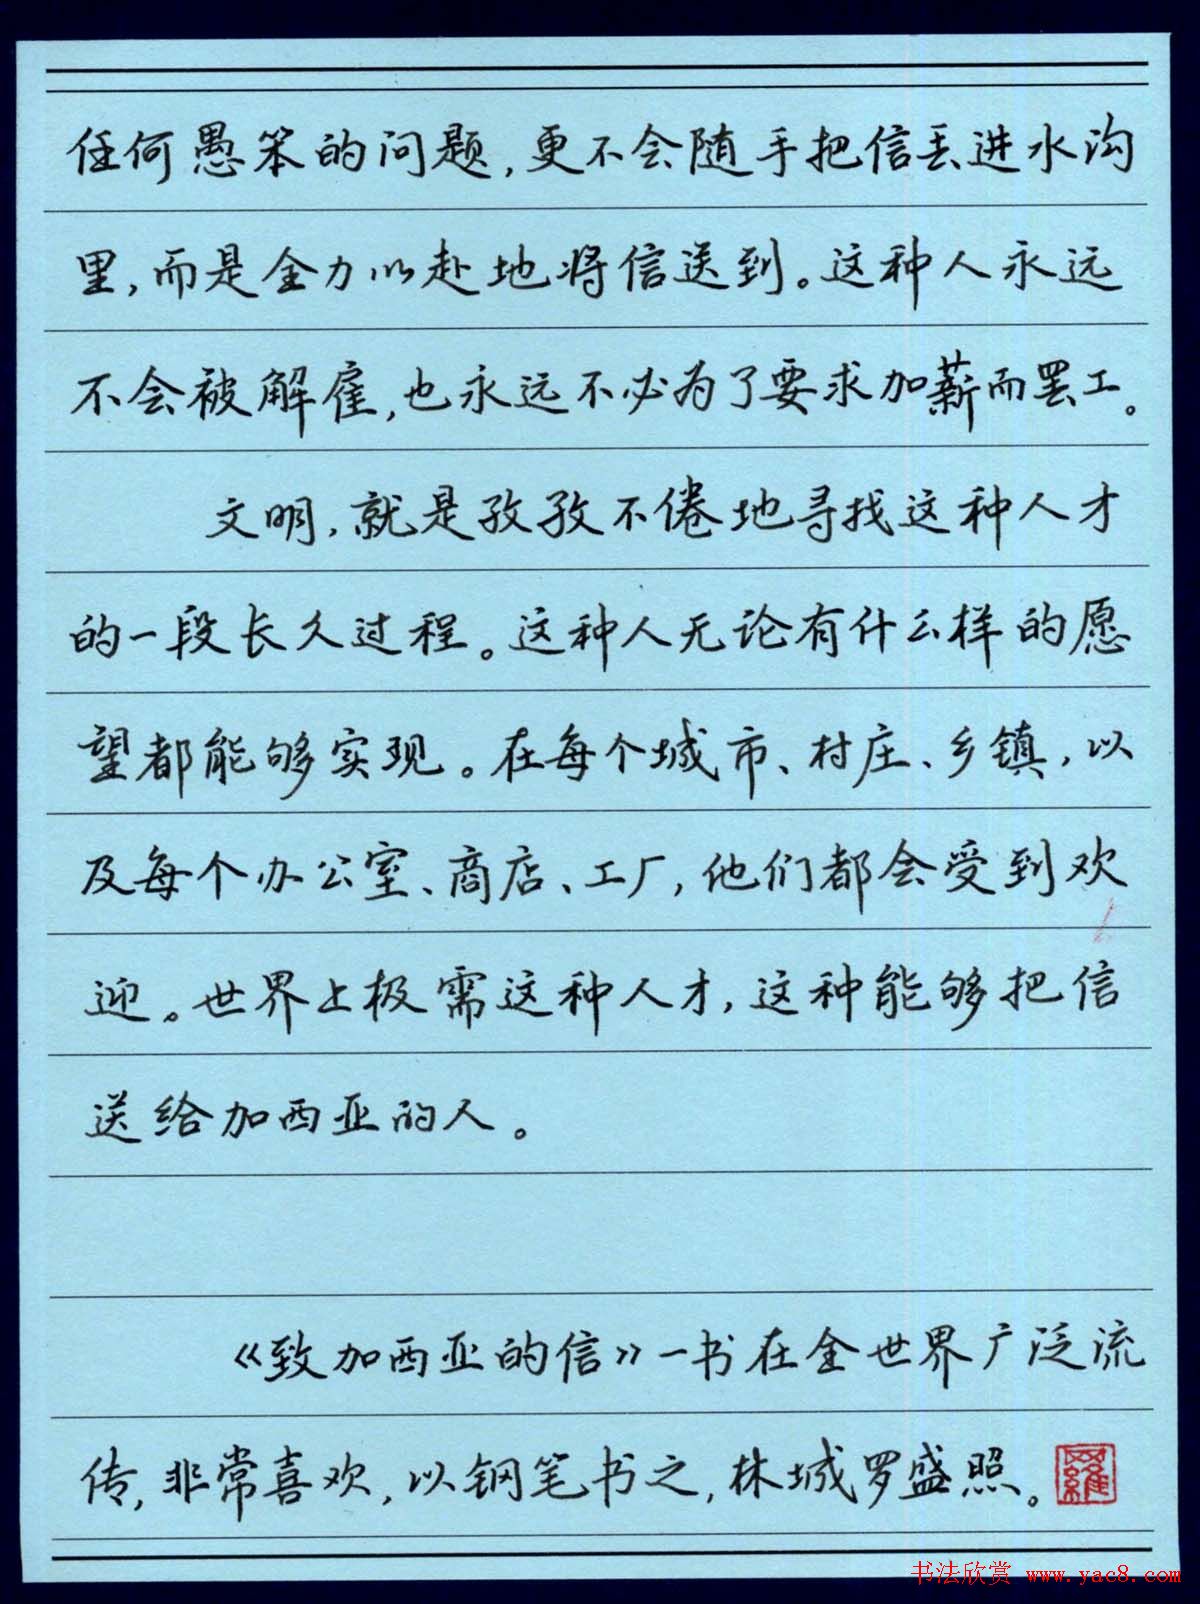 任何愚笨的问题，更不会随手把信丢进水沟
里，而是全力以赴地将信送到。这种人永远
不会被解雇，也永远不必为了要求加薪而罢工。
文明，就是孜孜不倦地寻找这种人才
的一段长久过程。这种人无论有什么样的愿
望都能够实现。在每个城市、村庄、乡镇，以
及每个办公室、商店、工厂，他们都会受到欢
迎。世界上极需这种人才，这种能够把信
送给加西亚的人。
《致加西亚的信》一书在全世界广泛流
传，非常喜欢，以钢笔书之，林城罗盛照。
羅
书法欣赏 www.yac8.com